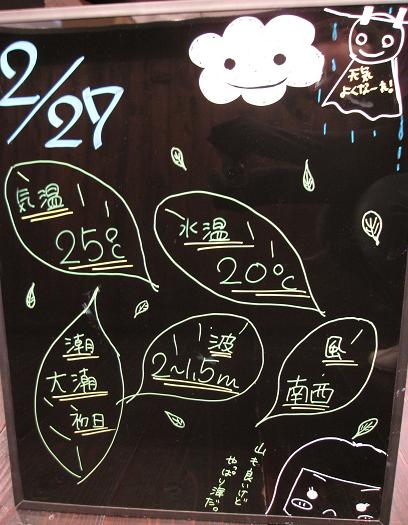 2/27
天気
よくなーれ!
気温
25℃
水温
20℃
潮
大潮
初日
波
2~1.5m
風
南西
山も良いけど
やっぱり海だ。